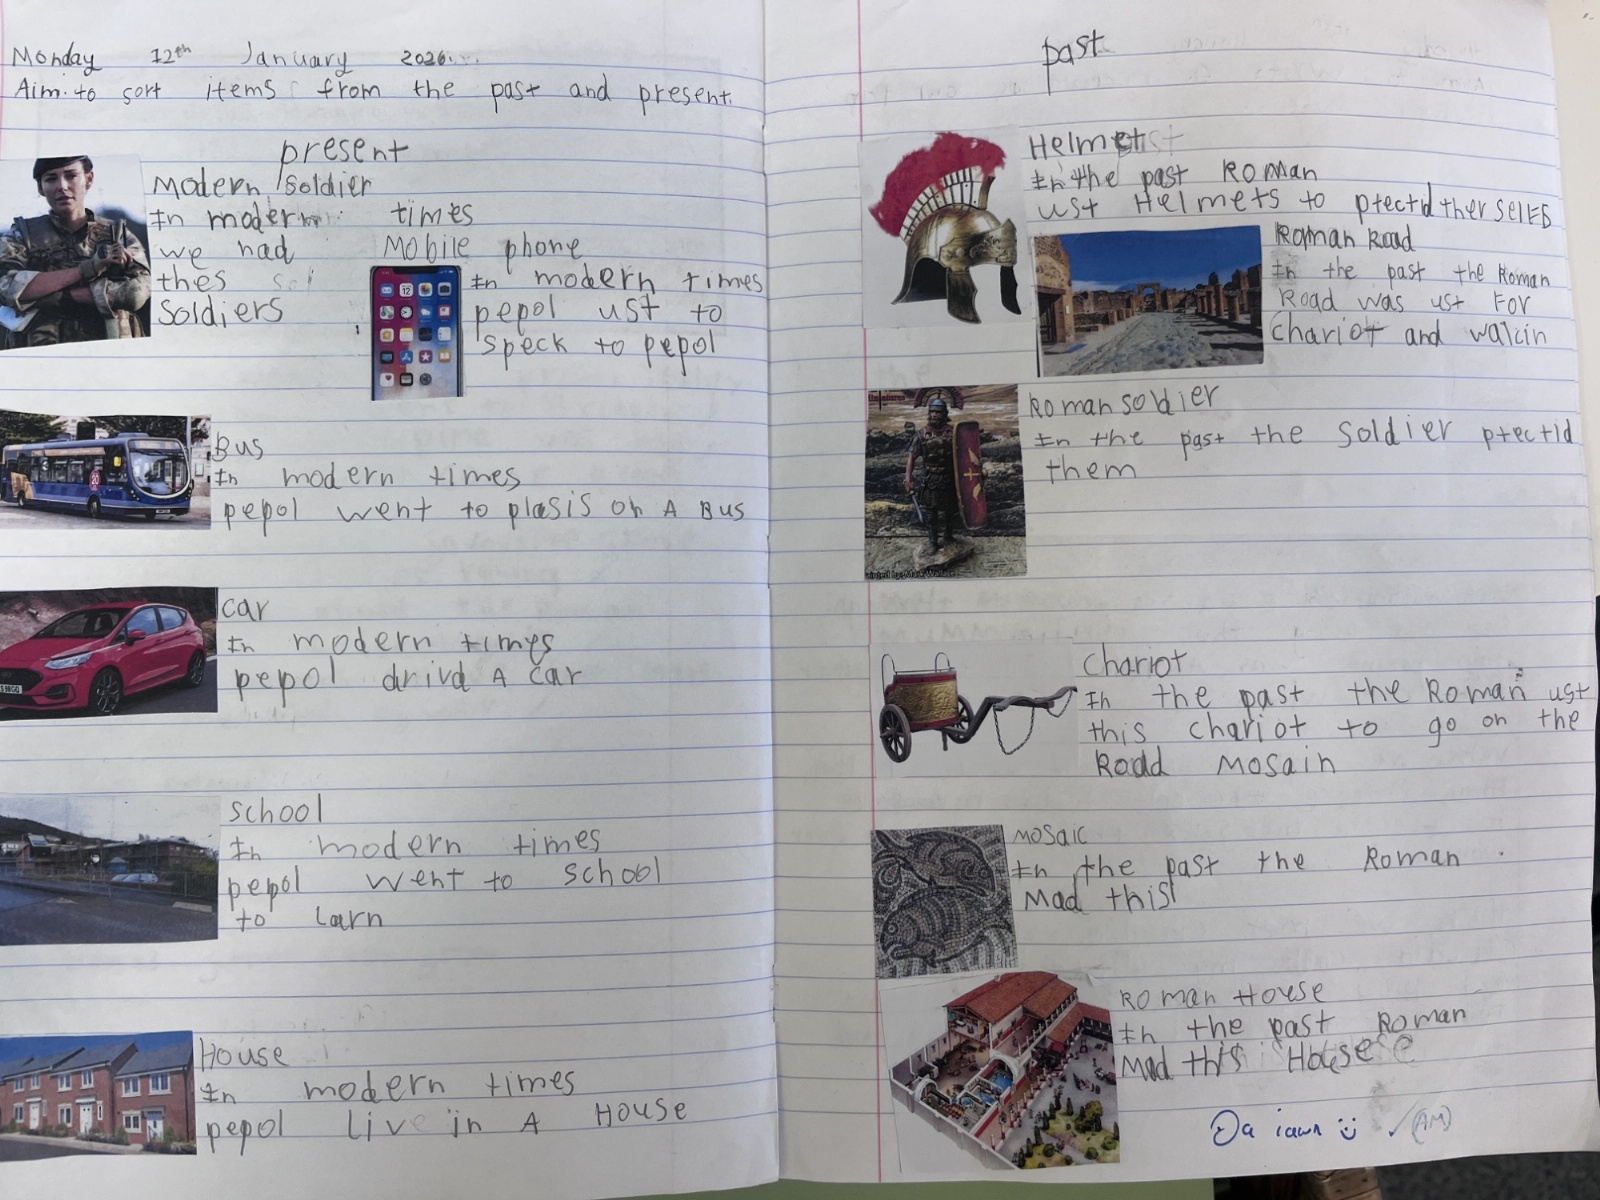 Monday 12th January 2026.
Aim: to sort items from the past and present.
present
Modern soldier
In modern times
we had
thes
soldiers
Mobile phone
In modern times
pepol ust to
speck to pepol
Bus
In modern times
pepol went to plasis on A Bus
car
In modern times
pepol drivd A car
school
In modern times
pepol went to school
to larn
House
In modern times
pepol live in A House
past
Helmet
In the past Roman
ust Helmets to ptectid ther selfs
Roman Road
In the past the Roman
Road was ust For
chariot and walcin
Roman soldier
In the past the soldier ptectid
them
chariot
In the past the Roman ust
this chariot to go on the
Roadd mosain
mosaic
In the past the Roman
Mad this
Roman House
In the past Roman
Mad this House
Da iawn (AM)